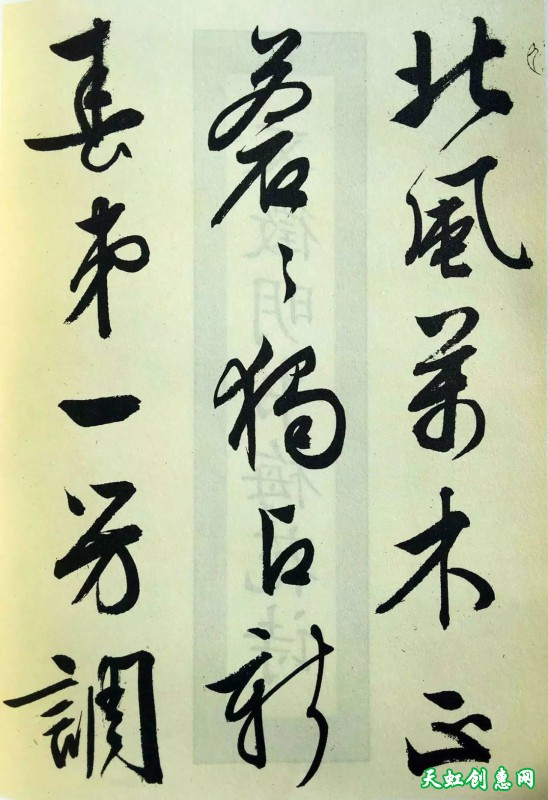 北風萬木正
蒼々獨占新
春第一芳調
天虹创惠网